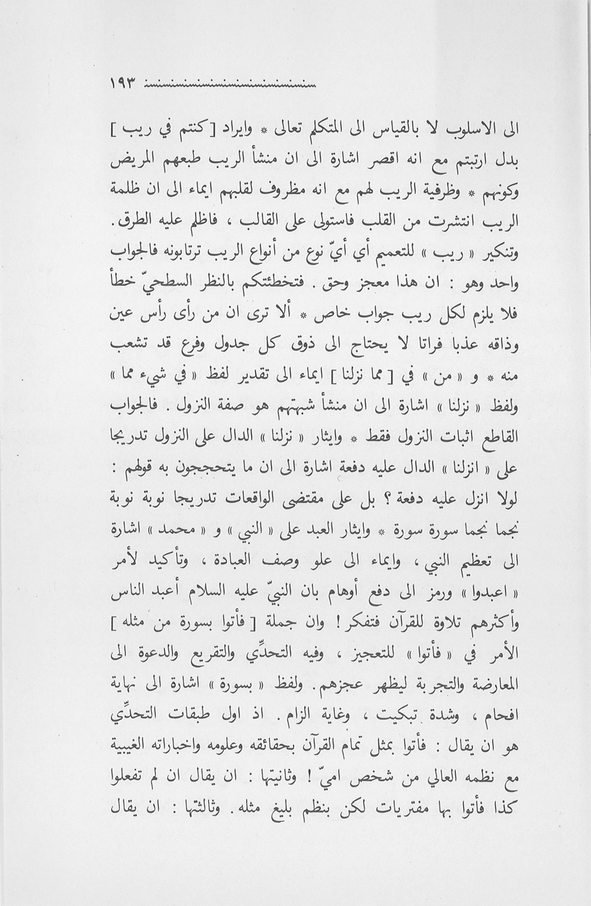 ١٩٣
الى الاسلوب لا بالقياس الى المتكلم تعالى * وايراد [ كنتم في ريب ]
بدل ارتبتم مع انه اقصر اشارة الى ان منشأ الريب طبعهم المريض
وكونهم * وظرفية الريب لهم مع انه مظروف لقلبهم ايماء الى ان ظلمة
الريب انتشرت من القلب فاستولى على القالب ، فاظلم عليه الطرق .
وتنكير « ريب » للتعميم أي أيّ نوع من أنواع الريب ترتابونه فالجواب
واحد وهو : ان هذا معجز وحق . فتخطئتكم بالنظر السطحيّ خطأ
فلا يلزم لكل ريب جواب خاص * ألا ترى ان من رأى رأس عين
وذاقه عذبا فراتا لا يحتاج الى ذوق كل جدول وفرع قد تشعب
منه * و « من » في [ مما نزلنا ] ايماء الى تقدير لفظ « في شيء مما »
ولفظ « نزلنا » اشارة الى ان منشأ شبهتهم هو صفة النزول . فالجواب
القاطع اثبات النزول فقط * وايثار « نزلنا » الدال على النزول تدريجا
على « انزلنا » الدال عليه دفعة اشارة الى ان ما يتحججون به قولهم :
لولا انزل عليه دفعة ؟ بل على مقتضى الواقعات تدريجا نوبة نوبة
نجما نجما سورة سورة * وايثار العبد على « النبي » و « محمد » اشارة
الى تعظيم النبي ، وايماء الى علو وصف العبادة ، وتأكيد لأمر
« اعبدوا » ورمز الى دفع أوهام بان النبيّ عليه السلام أعبد الناس
وأكثرهم تلاوة للقرآن فتفكر ! وان جملة [ فأتوا بسورة من مثله ]
الأمر في « فأتوا » للتعجيز ، وفيه التحدِّي والتقريع والدعوة الى
المعارضة والتجربة ليظهر عجزهم . ولفظ « بسورة » اشارة الى نهاية
افحام ، وشدة تبكيت ، وغاية الزام . اذ اول طبقات التحدِّي
هو ان يقال : فأتوا بمثل تمام القرآن بحقائقه وعلومه واخباراته الغيبية
مع نظمه العالي من شخص اميّ ! وثانيتها : ان يقال ان لم تفعلوا
كذا فأتوا بها مفتريات لكن بنظم بليغ مثله . وثالثتها : ان يقال